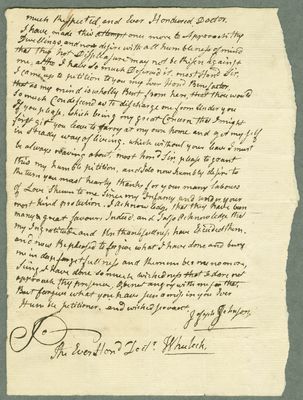 much Respected and ever Honoured Doctor.
I have made this attempt once more to Approach thy
Dwellings and now desire with all humbleness of mind
that thy hot Displeasure may not be Risen against
me, altho I have so much Deserved it. most Hon.d Sir.
I came up to petition to you my ever Hon.d Benefactor
that as my mind is wholly Bent from him, that thou would
so much Condescend as to discharge me from under you
if you please, which being my great Concern that I might
first git you leave to tarry at my own home and get my self
in steady way of living. which without your leave I must
be always roaving about, most hon.d Sir. please to grant
this my humble petition, and do now humbly desire to
return you most hearty thanks for your many Labours
of Love Shewn to me Since my Infancy and under your
most kind protection. I Acknowledge, that they have been
many & great favours, Indeed, and I also Acknowledge that
my Ingratitude and Unthankfulness, have Exceeded them.
and now Be pleased to forgive what I have done and bury
me in deep forgetfullness and think me no more
Seing I have done so much wickedness that I dare not
approach thy presence,
But forgive what you have seen amiss in your Ever
Humble petitioner, and wicked servant
Joseph Johnson,
To
The Ever Hon.d Doct.r Wheelock.